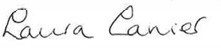 Laura Carier